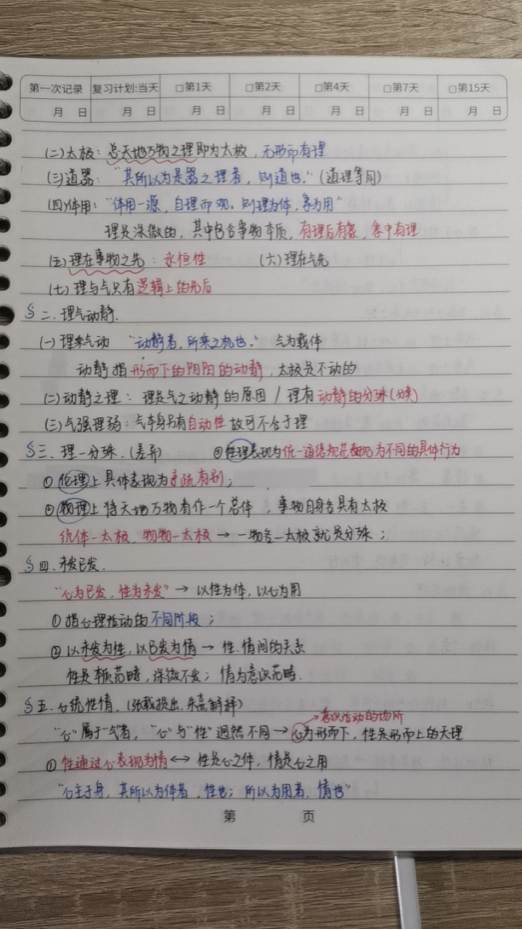 第一次记录 复习计划:当天 □第1天 □第2天 □第4天 □第7天 □第15天
月 日 月 日 月 日 月 日 月 日 月 日 月 日
(二)太极：总天地万物之理即为太极，无形而有理
(三)道器：“其所以为是器之理者，则道也。”(道理等同)
(四)体用：“体用一源，自理而观，则理为体，象为用”
理是深微的，其中包含事物本质，有理后有象，象中有理
(五)理在事物之先：永恒性 (六)理在气先
(七)理与气只有逻辑上的先后
§ 二、理气动静.
(一)理乘气动 “动静者，所乘之机也。” 气为载体
动静指形而下的阴阳的动静，太极是不动的
(二)动静之理：理是气之动静的原因 / 理有动静的分殊(分类)
(三)气强理弱：气本身另有自动性 故可不合于理
§三、理一分殊.(差异) ③性理表现为统一道德规范表现为不同的具体行为
① 伦理上具体表现为亲疏有别；
② 物理上 合天地万物有作一个总体，事物自身各具有太极
统体一太极，物物一太极 → 一物各一太极就是分殊；
§ 四、未发已发.
“心为已发，性为未发” → 以性为体，以心为用
① 指心理活动的不同阶段；
② 以未发为性，以已发为情 → 性.情间的关系
性是本质范畴，深微不发；情为意识范畴.
§ 五.心统性情.(张载提出.朱熹解释)
→意识活动的场所
“心”属于“气”者，“心”与“性”迥然不同 → 心为形而下，性是形而上的天理
① 性通过心表现为情 ↔ 性是心之体，情是心之用
“心主于身，其所以为体者，性也；所以为用者，情也”
第 页